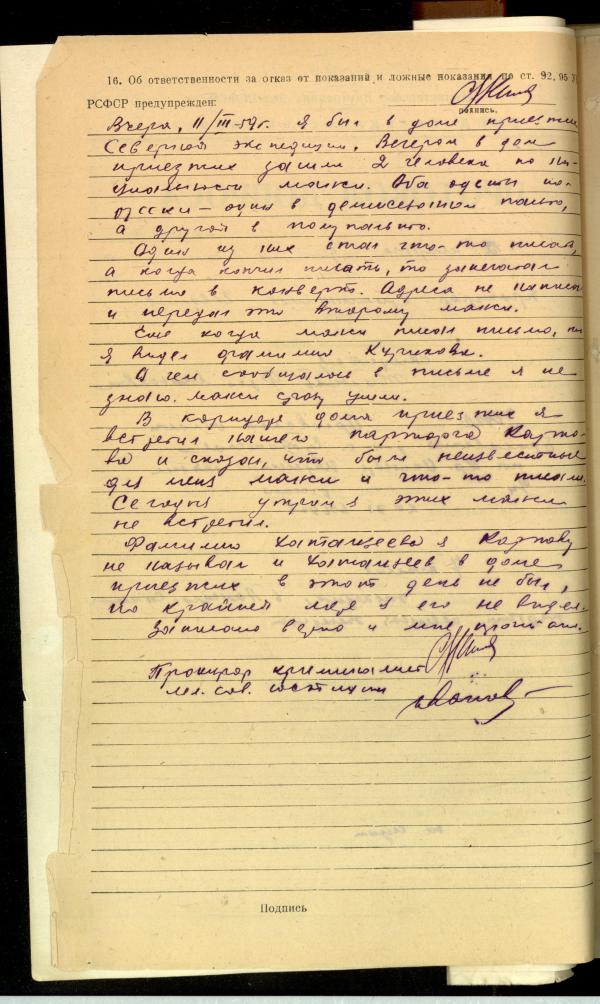 16. Об ответственности за отказ от показаний и ложные показания по ст. 92, 95 У
РСФСР предупрежден:
подпись.
Вчера, 11/III-59г. я был в доме приезжих
Северной экспедиции. Вечером в дом
приезжих зашли 2 человека по на-
циональности манси. Оба одеты по-
русски – один в демисезонном пальто,
а другой в полупальто.
Один из них стал что-то писать,
а когда кончил писать, то запечатал
письмо в конверт. Адреса не написал
и передал это второму манси.
Еще когда манси писал письмо, то
я видел фамилию Курикова.
О чем сообщалось в письме я не
знаю. манси сразу ушли.
В коридоре дома приезжих я
встретил нашего парторга
и сказал, что были неизвестные
для меня манси и что-то писали.
Сегодня утром я этих манси
не встретил.
Фамилию Хатанзеева я
не называл и Хатанзеев в доме
приезжих в этот день не был,
по крайней мере я его не видел.
Записано верно и мне прочитано.
Прокурор криминалист
мл. сов. юстиции
Подпись